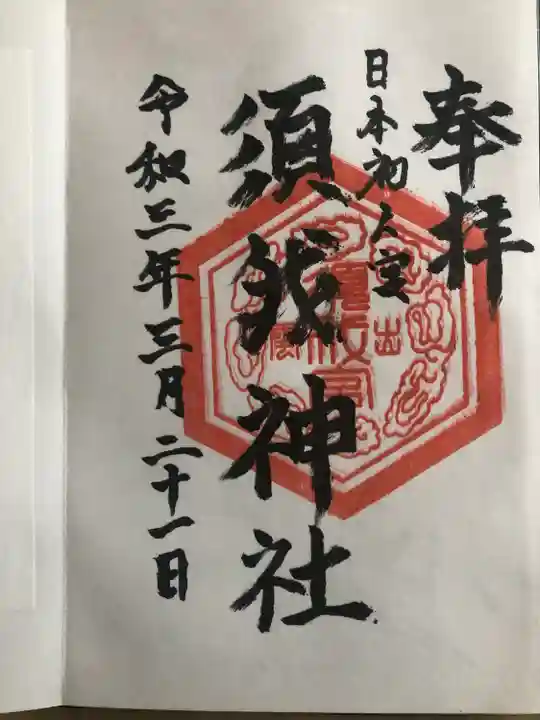 奉拝
日本初之宮
須我神社
令和三年三月二十一日
出雲